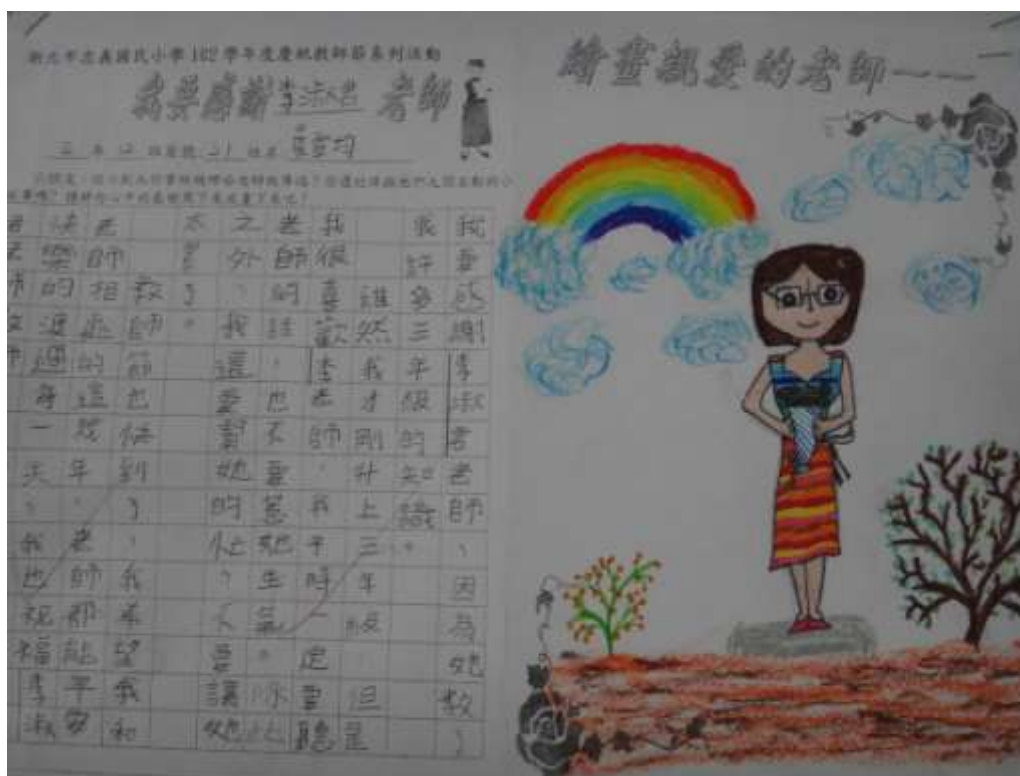 新北市忠義國民小學 102 學年度慶祝教師節系列活動
我要感謝李淑君老師
三年12班座號:21 姓名
我要感謝李淑君老師,因為她教了
我許多三年級的知識。
雖然我才剛升上三年級,但是
我很喜歡李老師,我平時一定要聽
老師的話,也不要惹她生氣。除此
之外,我還要幫她的忙,不要讓她
太累了。
教師節也快到了,我希望我和
老師相處的這幾年,老師都能平安
快樂的過每一天,我也祝福李淑
繪畫親愛的老師——